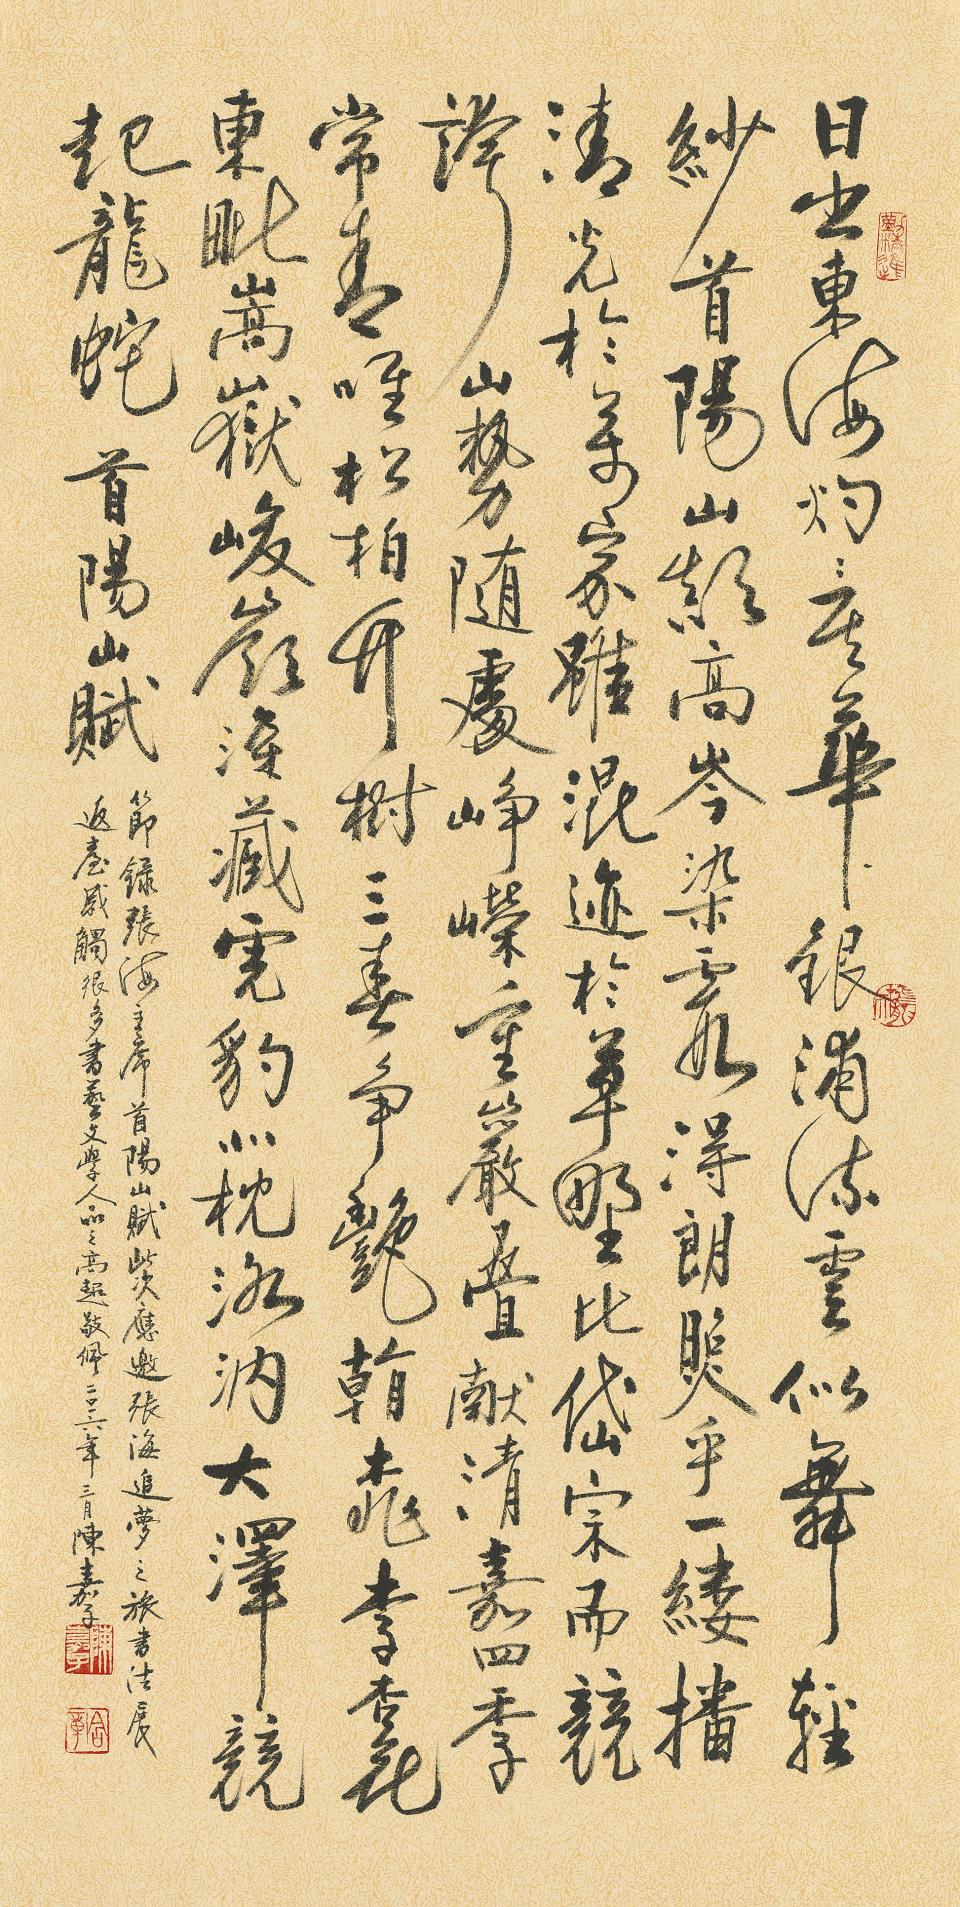 日出東海灼灼其華銀浦流雲似舞輕
紗首陽山巔高岑染霞得朗照乎一縷播
清光於萬家雖混迹於草野比岱宗而競
誇山勢隨處崢嶸重巖疊獻清嘉四季
常青唯松柏竹樹三春爭艷韓桃李杏花
東毗嵩嶽峻嶺深藏雲豹北枕洛汭大澤競
起龍蛇首陽山賦
節錄張海主席首陽山賦此次應邀張海追夢之旅書法展
返臺感觸很多書藝文學人品之高超敬佩二〇一六年三月陳嘉子